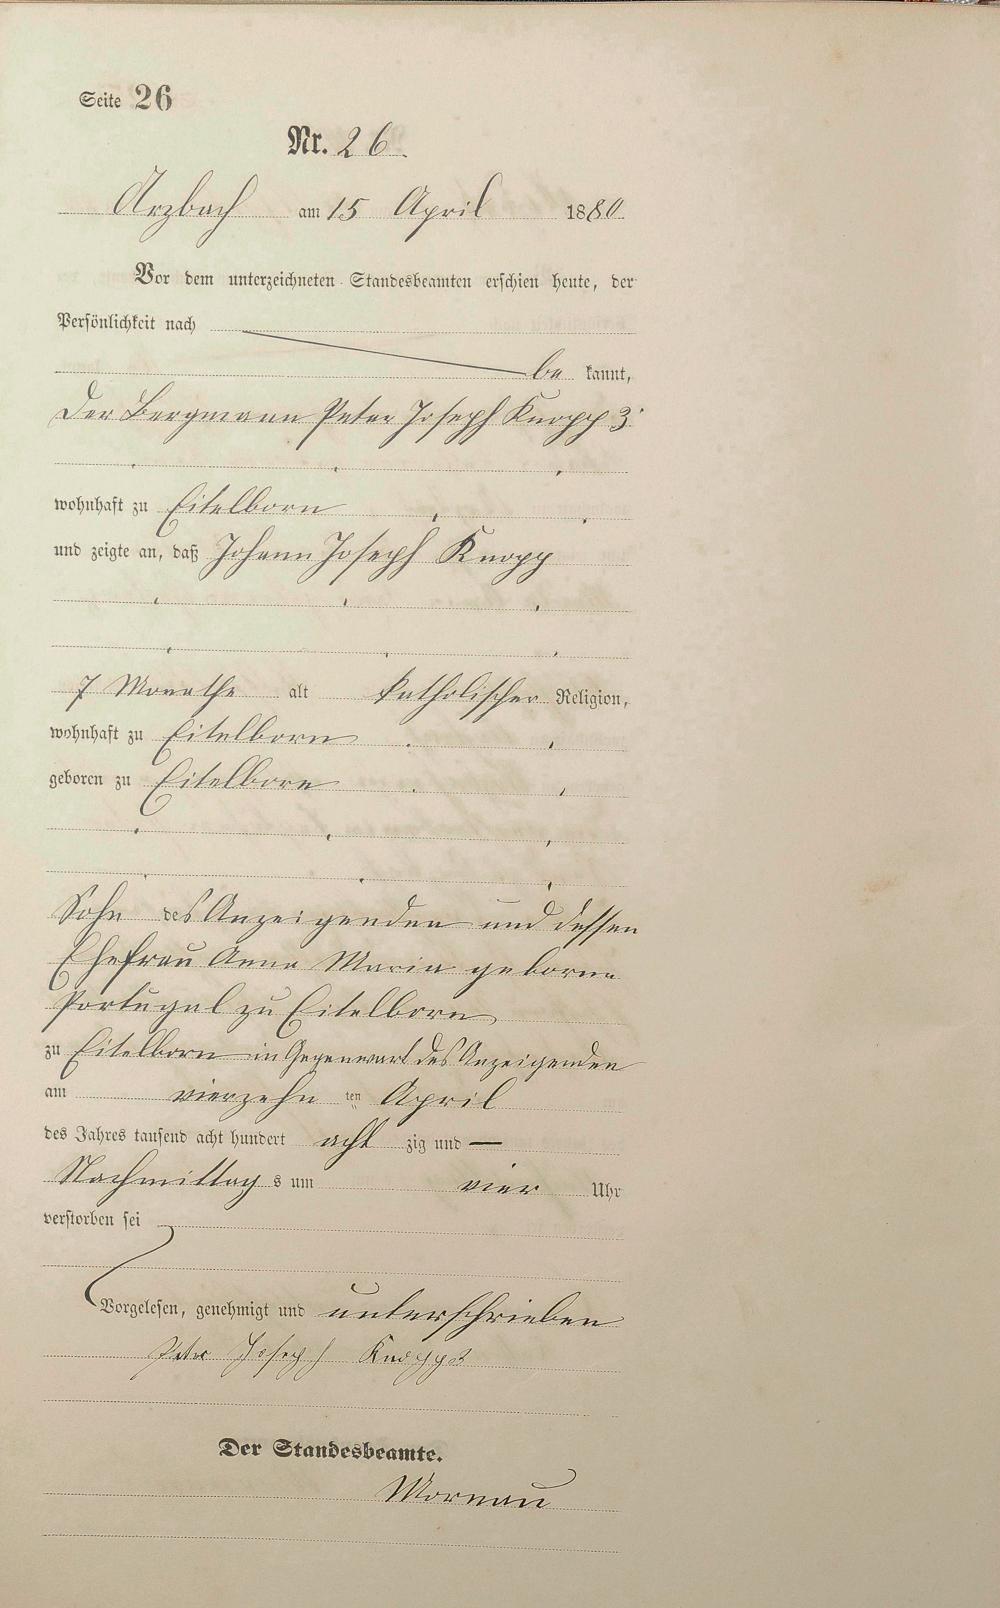 Seite 26
Nr. 26.
Arzbach am 15 April 1880.
Vor dem unterzeichneten Standesbeamten erschien heute, der
Persönlichkeit nach
be kannt,
Der Bergmann Peter Joseph Knopp 3.
wohnhaft zu Eitelborn
und zeigte an, daß Johann Joseph Knopp
7 Monathe alt katholischer Religion,
wohnhaft zu Eitelborn
geboren zu Eitelborn
Sohn des Anzeigenden und dessen
Ehefrau Anna Maria geborne
Portugal zu Eitelborn
zu Eitelborn in Gegenwart des Anzeigenden
am vierzehn ten April
des Jahres tausend acht hundert acht zig und —
Nachmittag s um vier Uhr
verstorben sei
Vorgelesen, genehmigt und unterschrieben
Peter Joseph Knopp 3
Der Standesbeamte.
Mornau